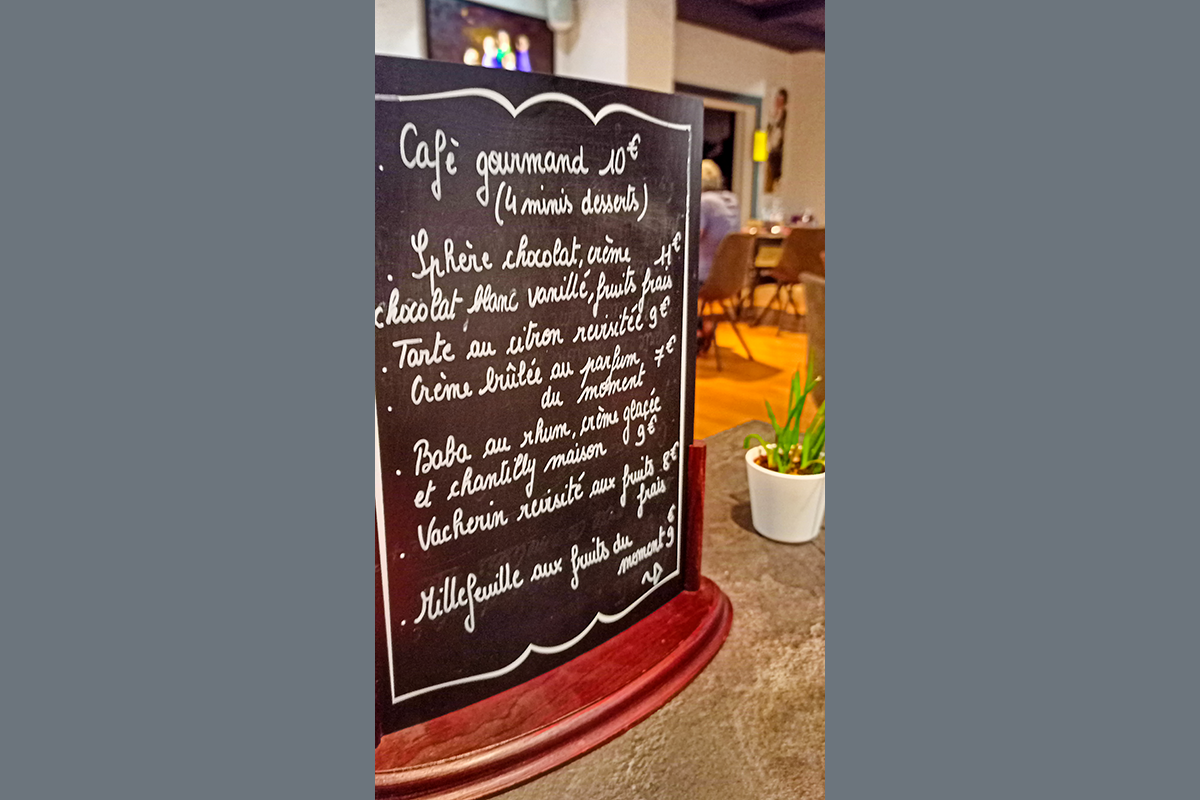 . Cafè gourmand 10€
(4 minis desserts)
. Sphère chocolat, crème 11€
chocolat blanc vanillé, fruits frais
. Tarte au citron revisitée 9€
. Crème brûlée au parfum 7€
du moment
. Baba au rhum, crème glaçée
et chantilly maison 9€
. Vacherin revisité aux fruits 8€
frais
. Millefeuille aux fruits du
moment 9€